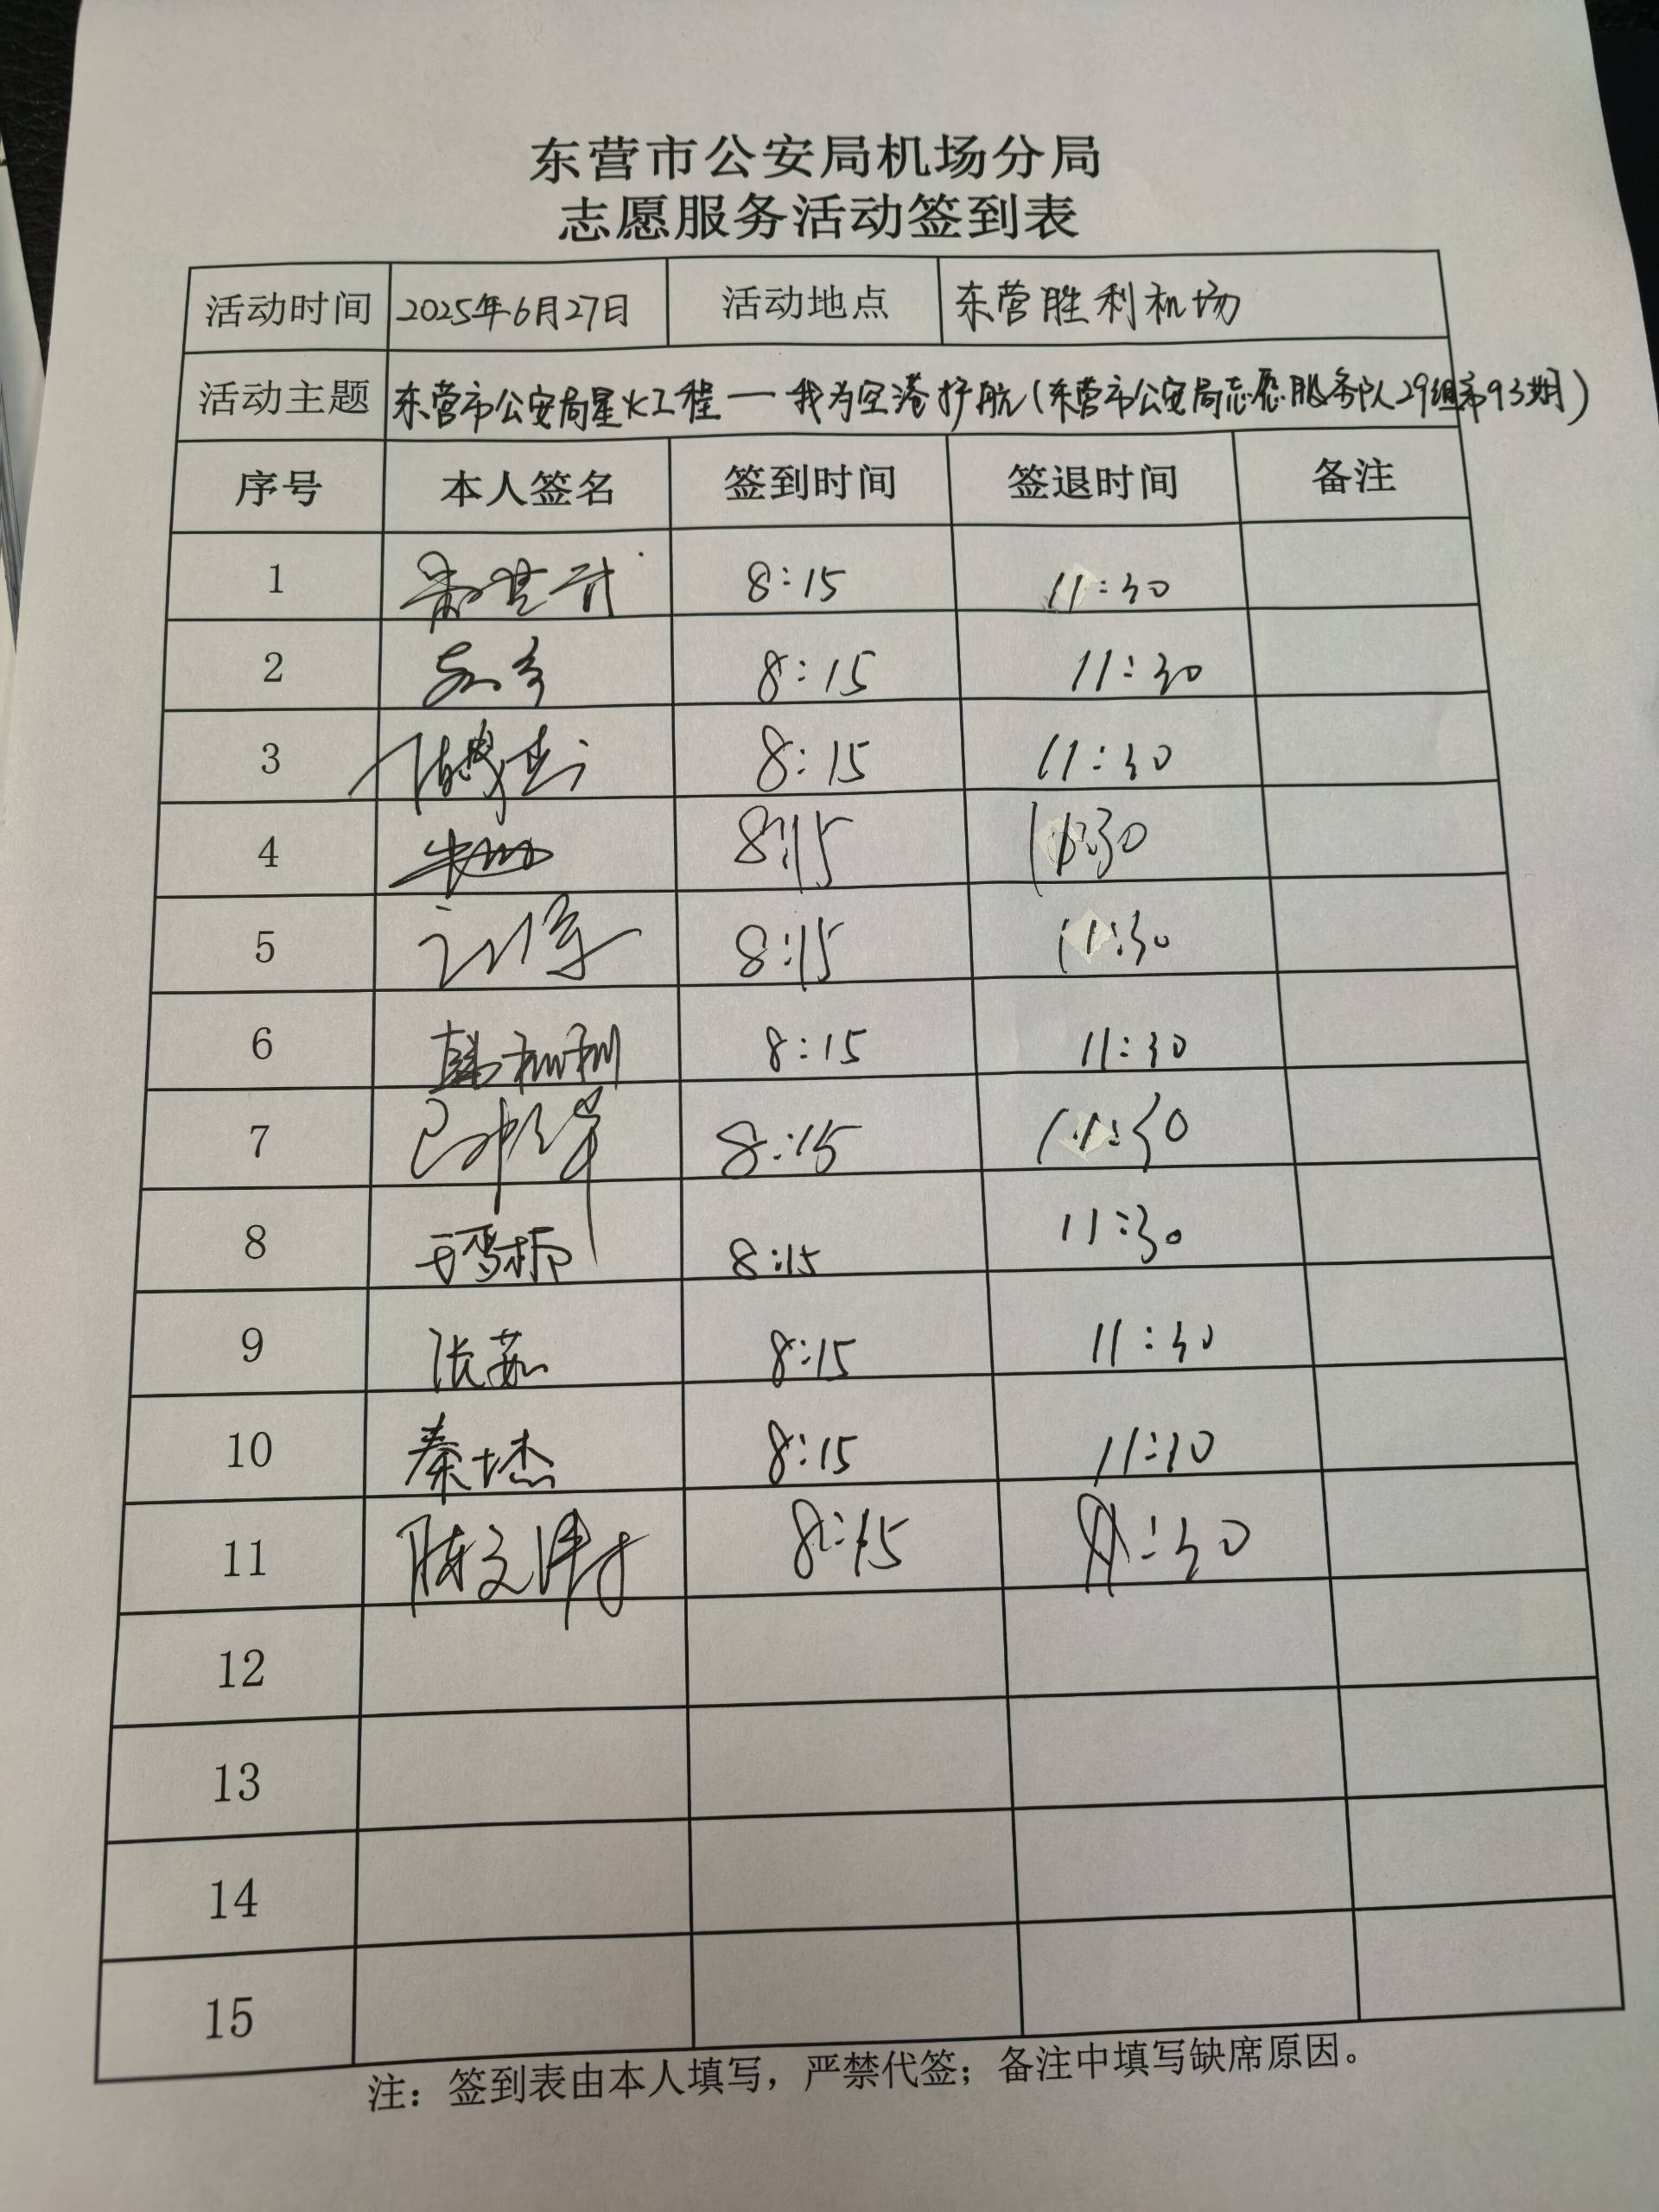 东营市公安局机场分局
志愿服务活动签到表
活动时间 2025年6月27日 活动地点 东营胜利机场
活动主题 东营市公安局星火工程一我为空港护航(东营市公安局志愿服务队29组第93期)
序号 本人签名 签到时间 签退时间 备注
1 8:15 11:30
2 8:15 11:30
3 8:15 11:30
4 8:15 11:30
5 8:15 11:30
6 8:15 11:30
7 8:15 11:30
8 8:15 11:30
9 张茹 8:15 11:30
10 秦杰 8:15 11:30
11 8:15 11:30
12
13
14
15
注：签到表由本人填写，严禁代签；备注中填写缺席原因。